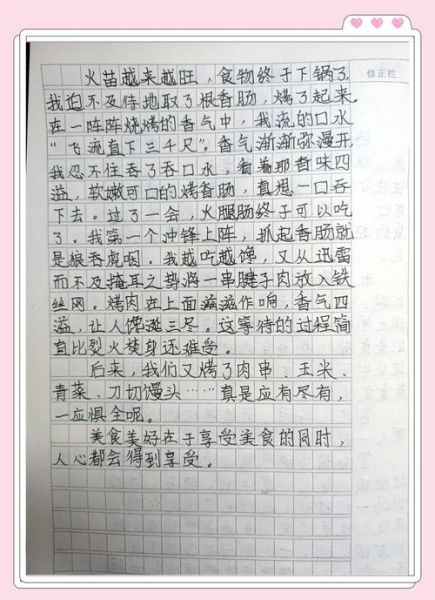 修正栏
火苗越来越旺，食物终于下锅了，
我迫不及侍地取了根香肠，烤了起来。
在一阵阵烧烤的香气中，我流的口水
“飞流直下三千尺”。香气渐渐弥漫开，
我忍不住吞了吞口水，看着那香味四
溢，软嫩可口的烤香肠，真想一口吞
下去。过了一会，火腿肠终于可以吃
了。我第一个冲锋上阵，抓起香肠就
是狼吞虎咽。我越吃越馋，又从迅雷
而不及掩耳之势将一串腱子肉放入铁
丝网。烤肉在上面滋滋作响，香气四
溢，让人馋涎三尽。这等待的过程简
直比裂火焚身还难受。
后来，我们又烤了肉串、玉米、
青菜、刀切馒头……真是应有尽有，
一应惧全呢。
美食美好在于享受美食的同时，
人心都会得到享受。